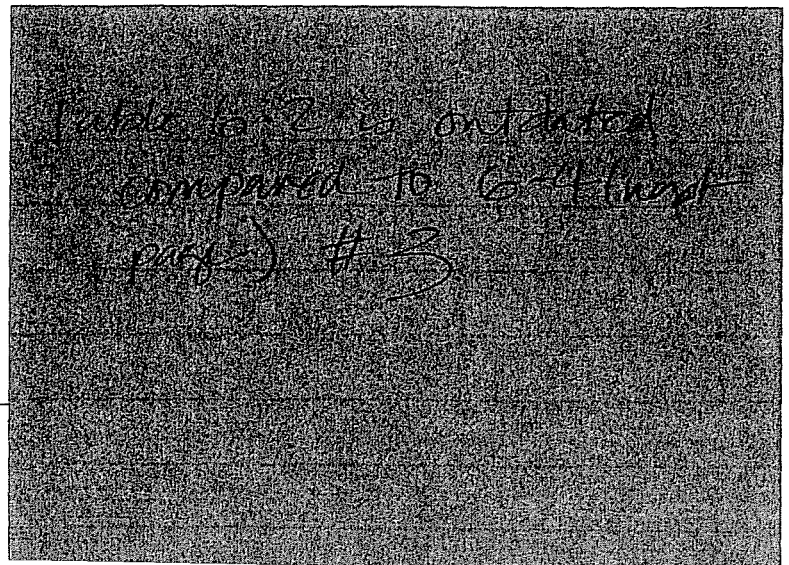 Table 6-2 is outdated
compared to 6-4 (next
page) # 3